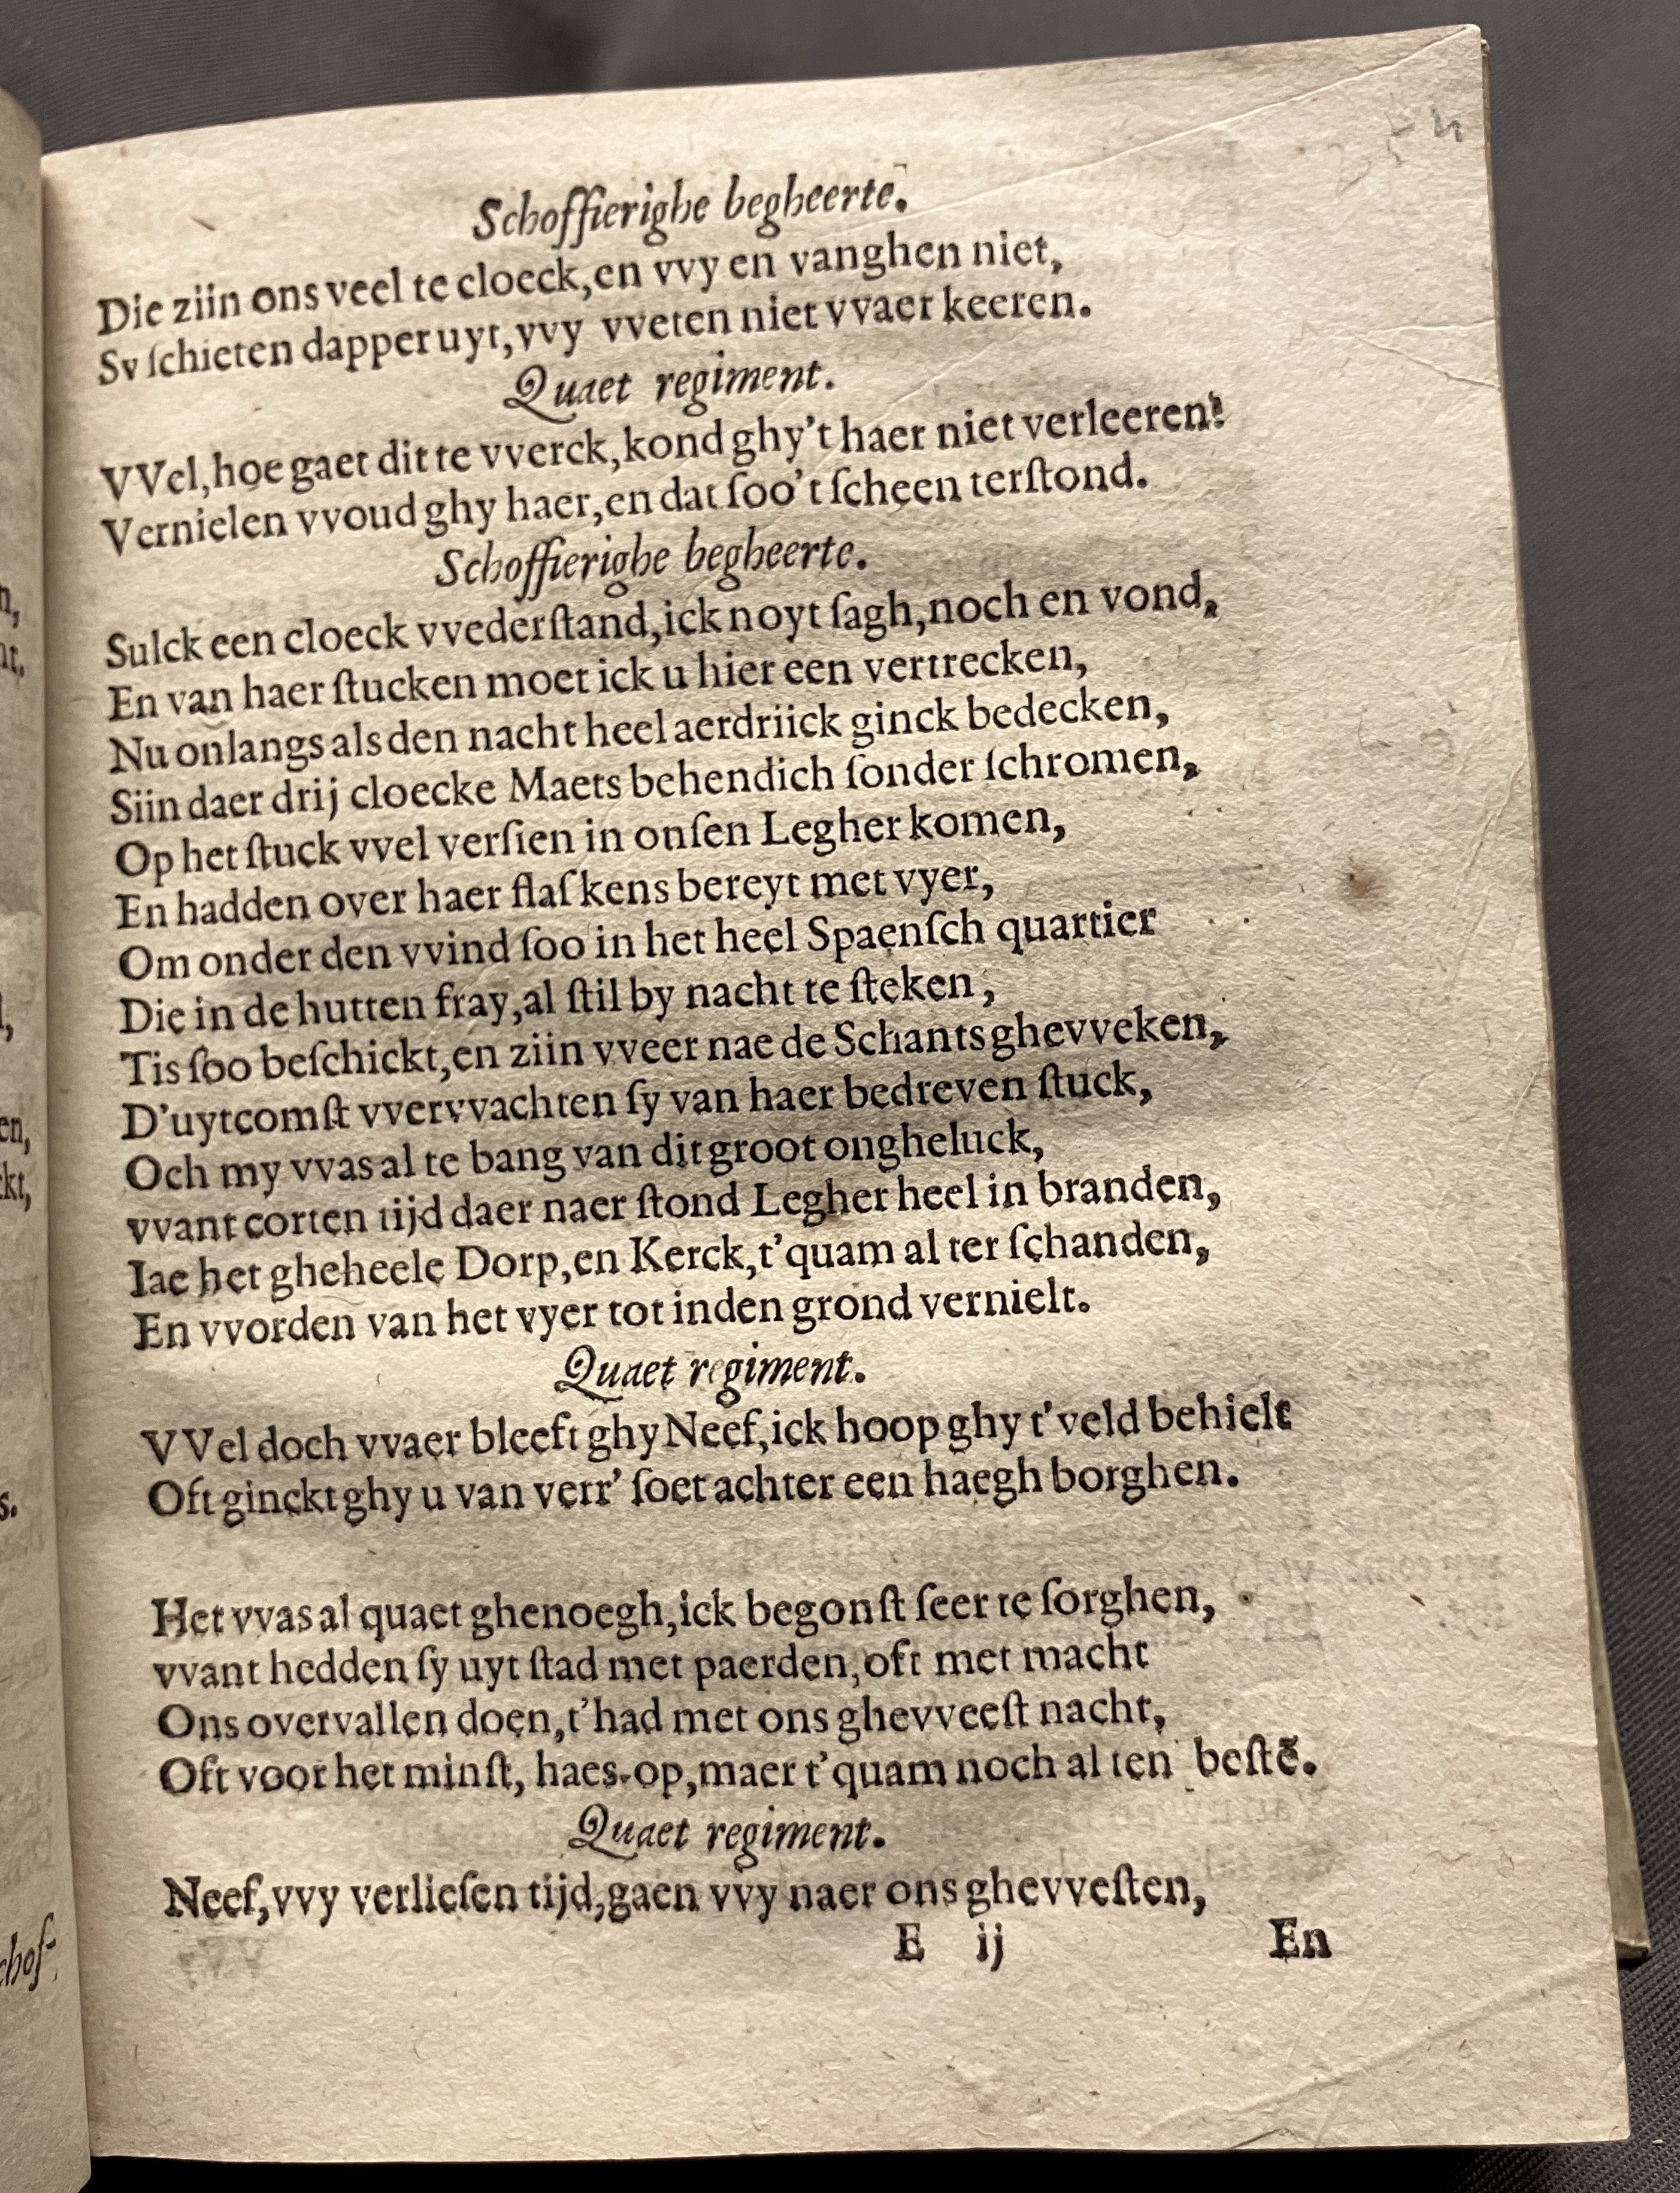 Schoffierighe begheerte.
Die ziin ons veel te cloeck, en vvy en vanghen niet,
Sy ſchieten dapper uyt, vvy vveten niet vvaer keeren.
Quaet regiment.
VVel, hoe gaet dit te vverck, kond ghy't haer niet verleeren?
Vernielen vvoud ghy haer, en dat ſoo't ſcheen terſtond.
Schoffierighe begheerte.
Sulck een cloeck vvederſtand, ick noyt ſagh, noch en vond,
En van haer ſtucken moet ick u hier een vertrecken,
Nu onlangs als den nacht heel aerdriick ginck bedecken,
Siin daer drij cloecke Maets behendich ſonder ſchromen,
Op het ſtuck vvel verſien in onſen Legher komen,
En hadden over haer flaſkens bereyt met vyer,
Om onder den vvind ſoo in het heel Spaenſch quartier
Die in de hutten fray, al ſtil by nacht te ſteken,
Tis ſoo beſchickt, en ziin vveer nae de Schants ghevveken,
D'uytcomſt vvervvachten ſy van haer bedreven ſtuck,
Och my vvas al te bang van dit groot ongheluck,
vvant corten tijd daer naer ſtond Legher heel in branden,
Iae het gheheele Dorp, en Kerck, t'quam al ter ſchanden,
En vvorden van het vyer tot inden grond vernielt.
Quaet regiment.
VVel doch vvaer bleeft ghy Neef, ick hoop ghy t'veld behielt
Oft ginckt ghy u van verr' ſoet achter een haegh borghen.
Het vvas al quaet ghenoegh, ick begonſt ſeer te ſorghen,
vvant hedden ſy uyt ſtad met paerden, oft met macht
Ons overvallen doen, t'had met ons ghevveeſt nacht,
Oft voor het minſt, haes-op, maer t'quam noch al ten beſtē.
Quaet regiment.
Neef, vvy verlieſen tijd, gaen vvy naer ons ghevveſten,
E ij En